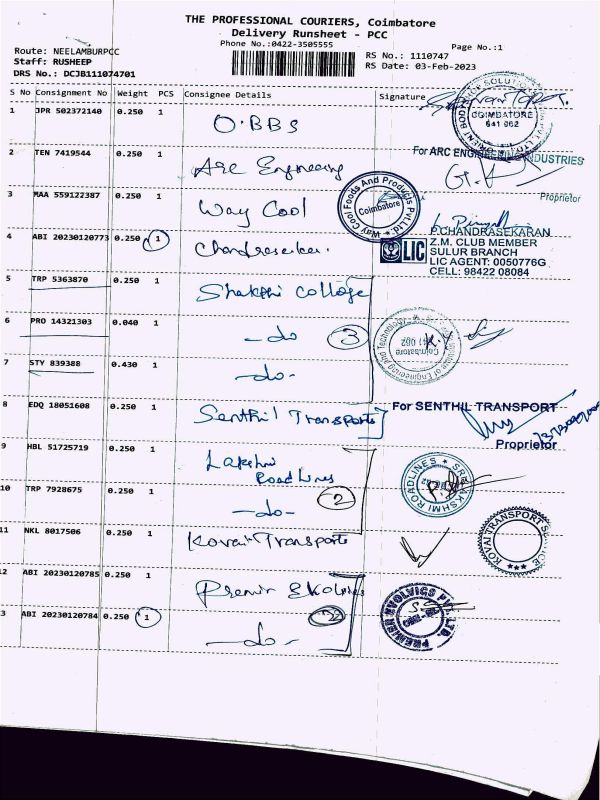 THE PROFESSIONAL COURIERS, Coimbatore
Delivery Runsheet - PCC
Phone No.:0422-3505555
Page No.:1
Route: NEELAMBURPCC
Staff: RUSHEEP
DRS No.: DCJB111074701
RS No.: 1110747
RS Date: 03-Feb-2023
S No Consignment No Weight PCS Consignee Details Signature
1 JPR 502372140 0.250 1 O'BBS
COIMBATORE
641 062
2 TEN 7419544 0.250 1 Arc Engineering
For ARC ENGINEERING INDUSTRIES
Proprietor
3 MAA 559122387 0.250 1 Way Cool
Way Cool Foods And Products Pvt Ltd
Coimbatore
4 ABI 20230120773 0.250 1 Chandrasekar
P.CHANDRASEKARAN
Z.M. CLUB MEMBER
SULUR BRANCH
LIC AGENT: 0050776G
CELL: 98422 08084
LIC
5 TRP 5363870 0.250 1 Shakthi College
6 PRO 14321303 0.040 1 -do- 3
Institute of Engineering And Technology
Coimbatore
641 062
7 STY 839388 0.430 1 -do-
8 EDQ 18051608 0.250 1 Senthil Transports
For SENTHIL TRANSPORT
Proprietor
9 HBL 51725719 0.250 1 Lakshmi
Road Lines
SRI LAKSHMI ROADLINES
10 TRP 7928675 0.250 1 -do- 2
11 NKL 8017506 0.250 1 Kovai Transports
KOVAI TRANSPORT SERVICE
12 ABI 20230120785 0.250 1
13 ABI 20230120784 0.250 1 -do- 2